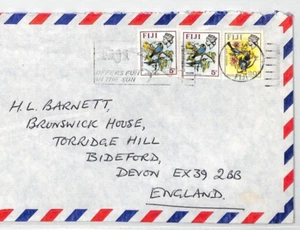 FIJI FIJI FIJI
OFFERS FUN
IN THE SUN
H.L. BARNETT,
BRUNSWICK HOUSE,
TORRIDGE HILL
BIDEFORD,
DEVON EX39 2BB
ENGLAND.